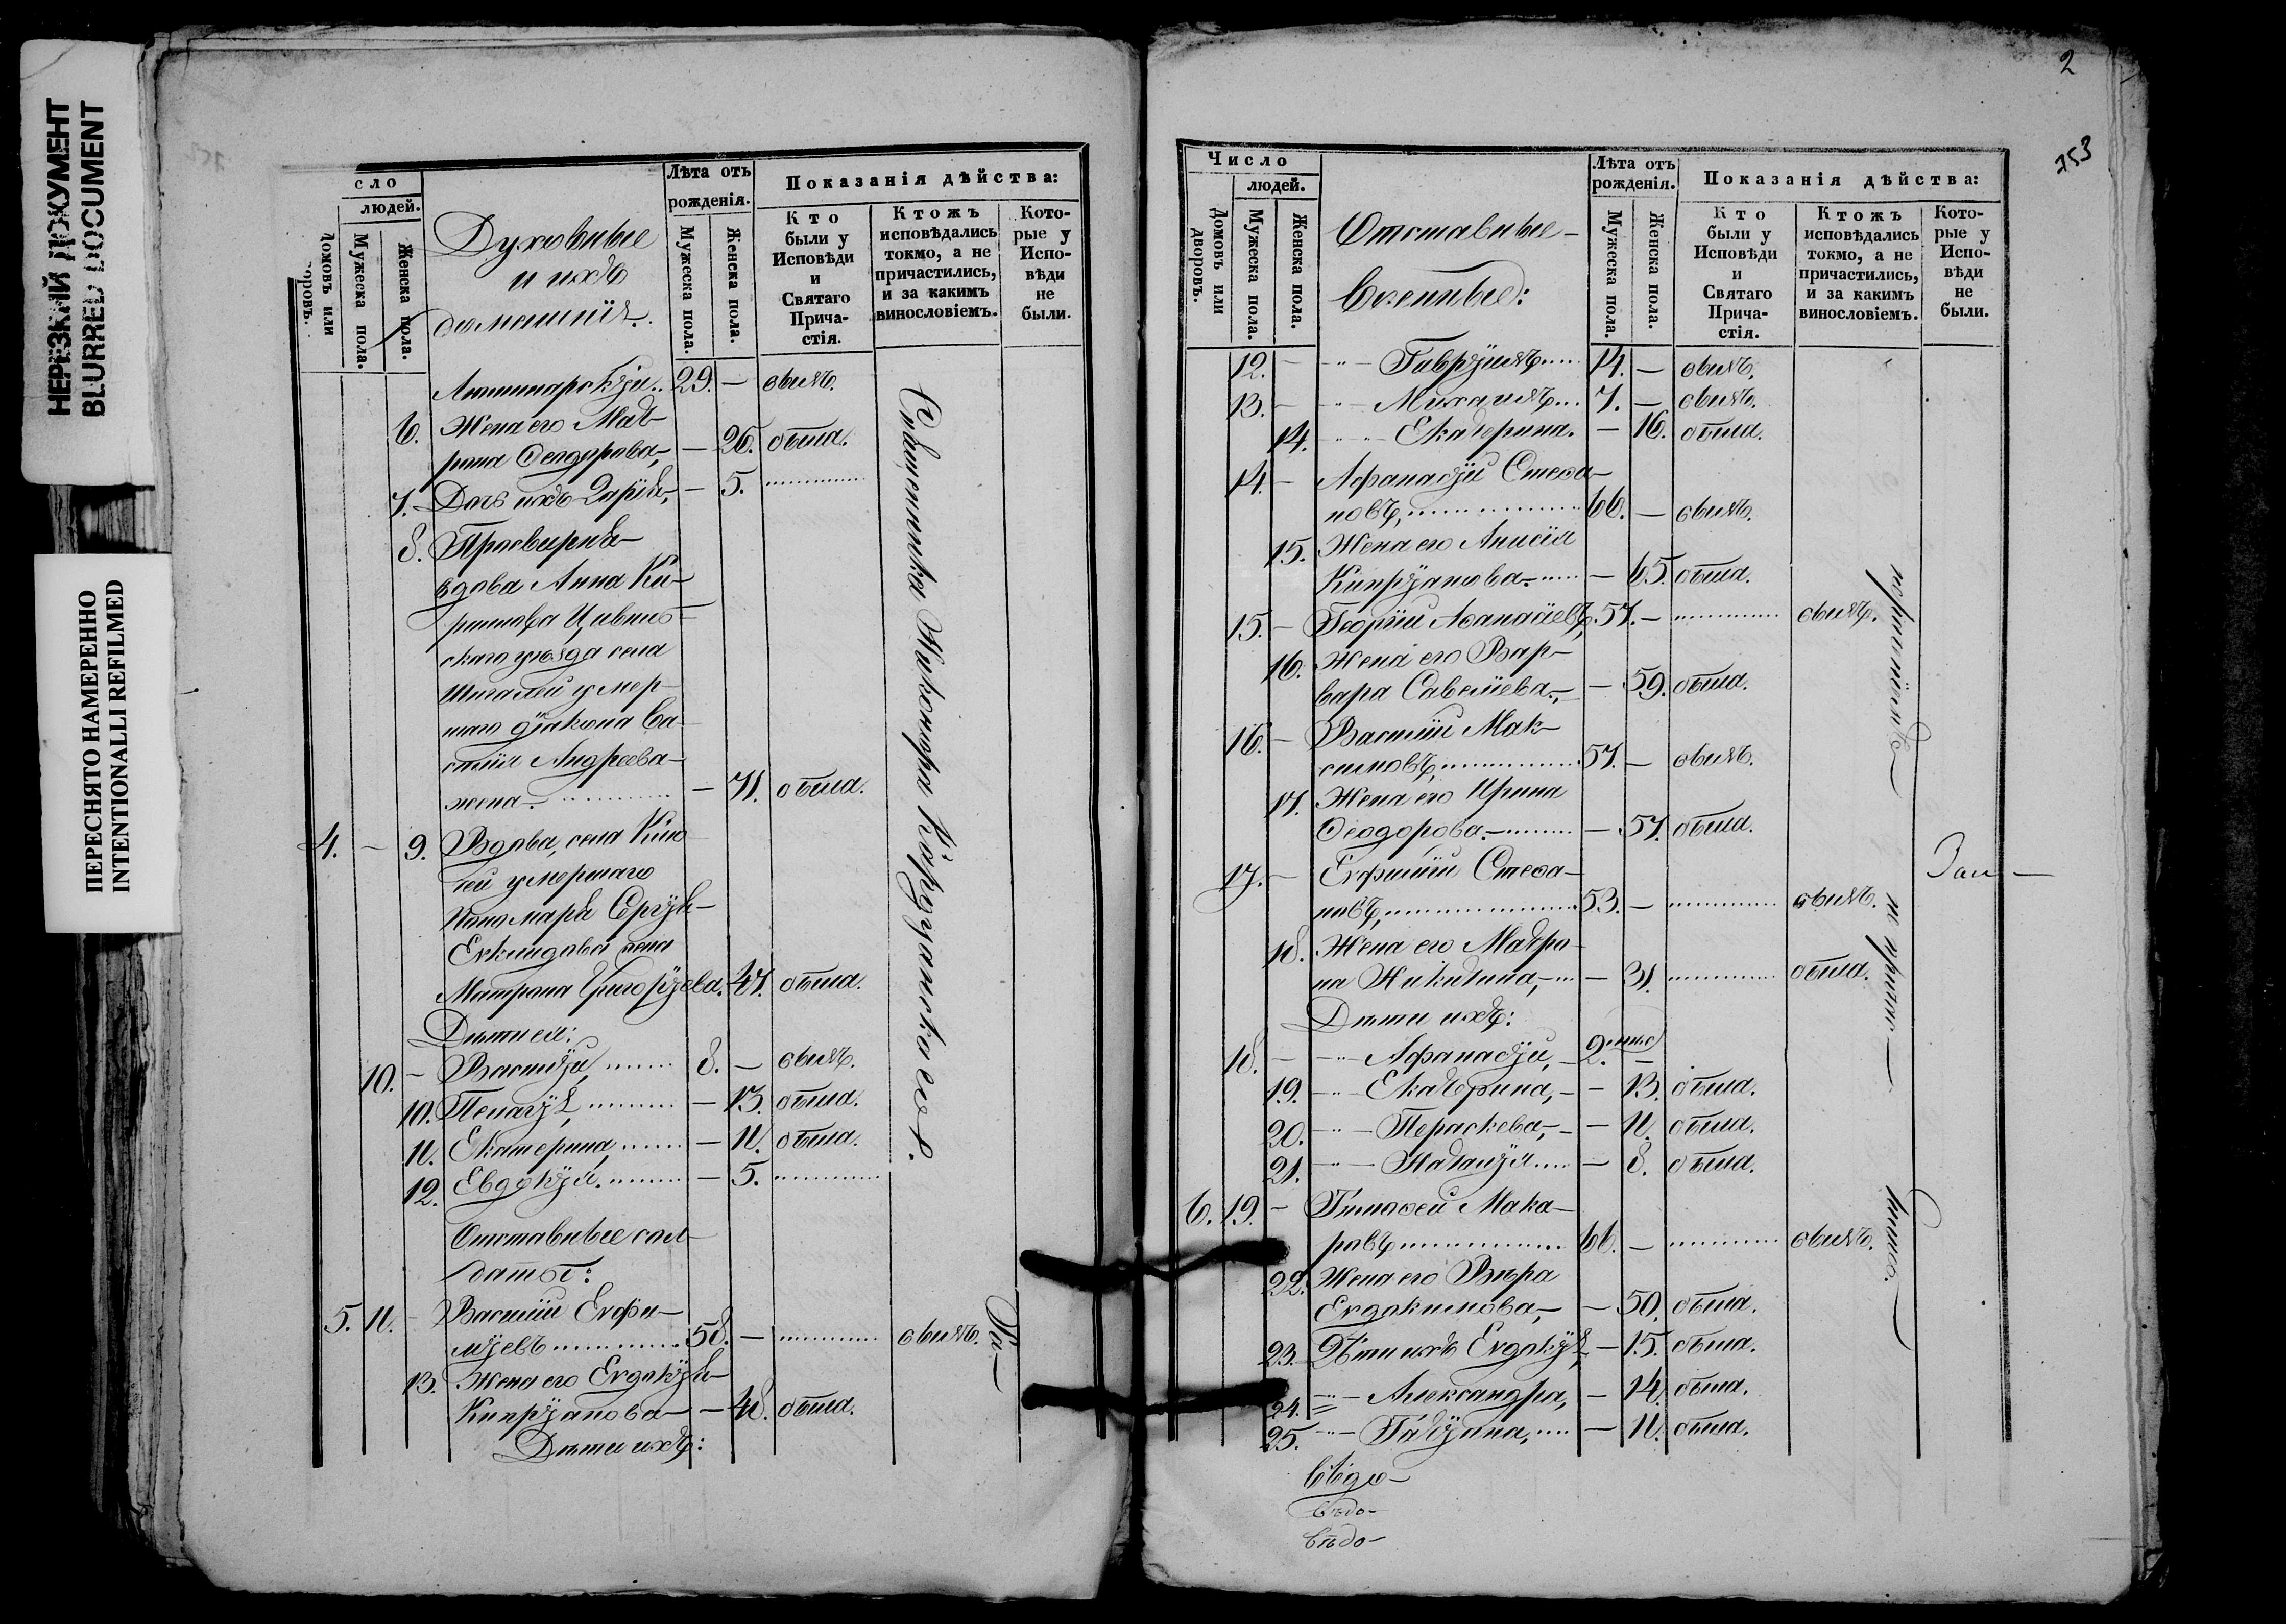 НЕРЕЗКИЙ ДОКУМЕНТ
BLURRED DOCUMENT
ПЕРЕСНЯТО НАМЕРЕННО
INTENTIONALLI REFILMED
сло
людей.
Домовъ или
воровъ.
Мужеска пола.
Женска пола.
Духовные
и ихъ
домашнія.
Лѣта отъ
рожденія.
Мужеска пола.
Женска пола.
Показанія дѣйства:
Кто
были у
Исповѣди
и
Святаго
Прича-
стія.
Ктожъ
исповѣдались
токмо, а не
причастились,
и за какимъ
винословіемъ.
Кото-
рые у
Испо-
вѣди
не
были.
29. — былъ.
6. Жена его Мат-
рона Ѳеодорова, — 26. была.
7. Дочь ихъ Дарія, — 5.
8. Просвирня
вдова Анна Ки-
скаго уѣзда села
умер-
шаго діакона Ва-
силія Андреева
жена — 71. была.
4. — 9. Вдова, села
умершаго
пономаря Сергія
жена
Матрона Григоріева. 47. была.
Дѣти ея:
10. — Василій, 8. — былъ.
10. Пелагія, — 13. была.
11. Екатерина, — 11. была.
12. Евдокія. — 5.
Отставные сол-
даты:
5. 11. — Василій Ефи-
міевъ 58. — былъ.
13. Жена его Евдокія
Кипріанова — 48. была.
Дѣти ихъ:
Священника Никонора
2
253
Число
людей.
Домовъ или
дворовъ.
Мужеска пола.
Женска пола.
Отставные
Военные:
Лѣта отъ
рожденія.
Мужеска пола.
Женска пола.
Показанія дѣйства:
Кто
были у
Исповѣди
и
Святаго
Прича-
стія.
Ктожъ
исповѣдались
токмо, а не
причастились,
и за какимъ
винословіемъ.
Кото-
рые у
Испо-
вѣди
не
были.
12. — Гавріилъ 14. — былъ.
13. — Михаилъ 7. — былъ.
14. Екатерина. — 16. была.
14. — Афанасій Стефа-
новъ, 66. — былъ.
15. Жена его Анисія
Кипріанова. — 65. была.
15. — Георгій Аѳанасіевъ, 57. — былъ.
16. Жена его Вар-
вара Савеліева. — 59. была.
16. — Василій Мак-
симовъ, 57. — былъ.
17. Жена его Ирина
Ѳеодорова. — 57. была.
17. — Евфимій Стефа-
новъ, 53. — былъ.
18. Жена его Матро-
на Никитина, — 31. была.
Дѣти ихъ:
18. — Афанасій, 2. —
19. Екатерина, — 13. была.
20. Параскева, — 11. была.
21. Наталія — 8. была.
6. 19. — Тимоѳей Мака-
ровъ 66. — былъ.
22. Жена его Вѣра
Евдокимова, — 50. была.
23. Дѣти ихъ Евдокія, — 15. была.
24. Александра, — 14. была.
25. Татіана, — 11. была.
вѣдо-
вѣдо-
вѣдо-